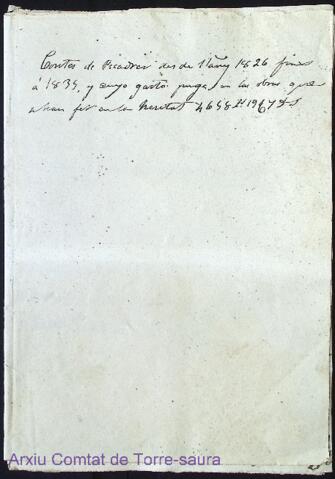 Contes de Picadrés desde l'añy 1826 fins
á 1834, y cuyo gasto puja en las obras que
s'han fet en la Heretat 4658 ƚƚ 19 ẞ 7 ds
Arxiu Comtat de Torre-saura